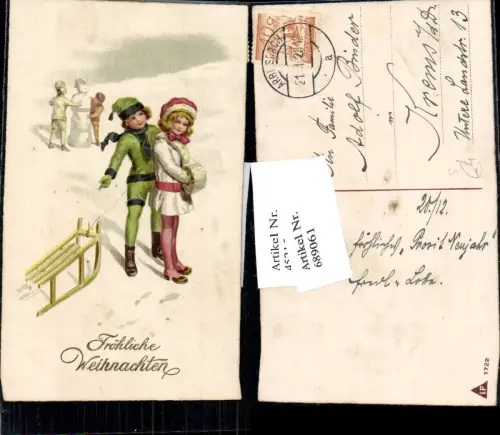 Fröhliche
Weihnachten
Artikel Nr.
Artikel Nr.
689061
An Familie
Adolf Binder
in
Krems a/d
Untere Landstr. 13
20./12.
Fröhliches "Prosit Neujahr"
LP
1722